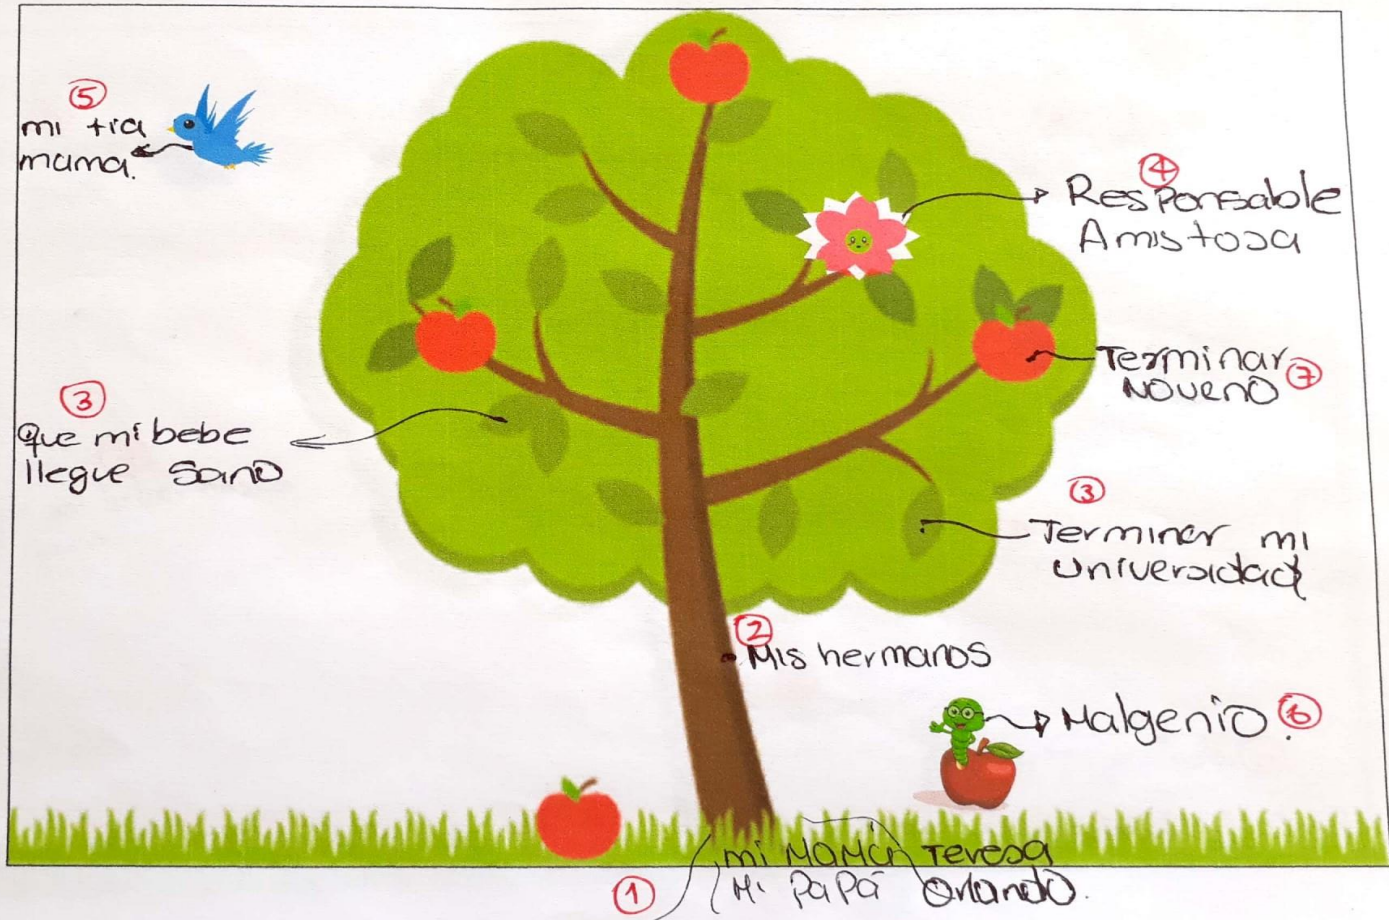 5
mi tia
mama.
4
Responsable
Amistosa
Terminar
Noveno 7
3
Que mi bebe
llegue sano
3
Terminar mi
Universidad
2
Mis hermanos
Malgenio. 6
mi MaMá Teresa
Mi PaPá Orlando.
1